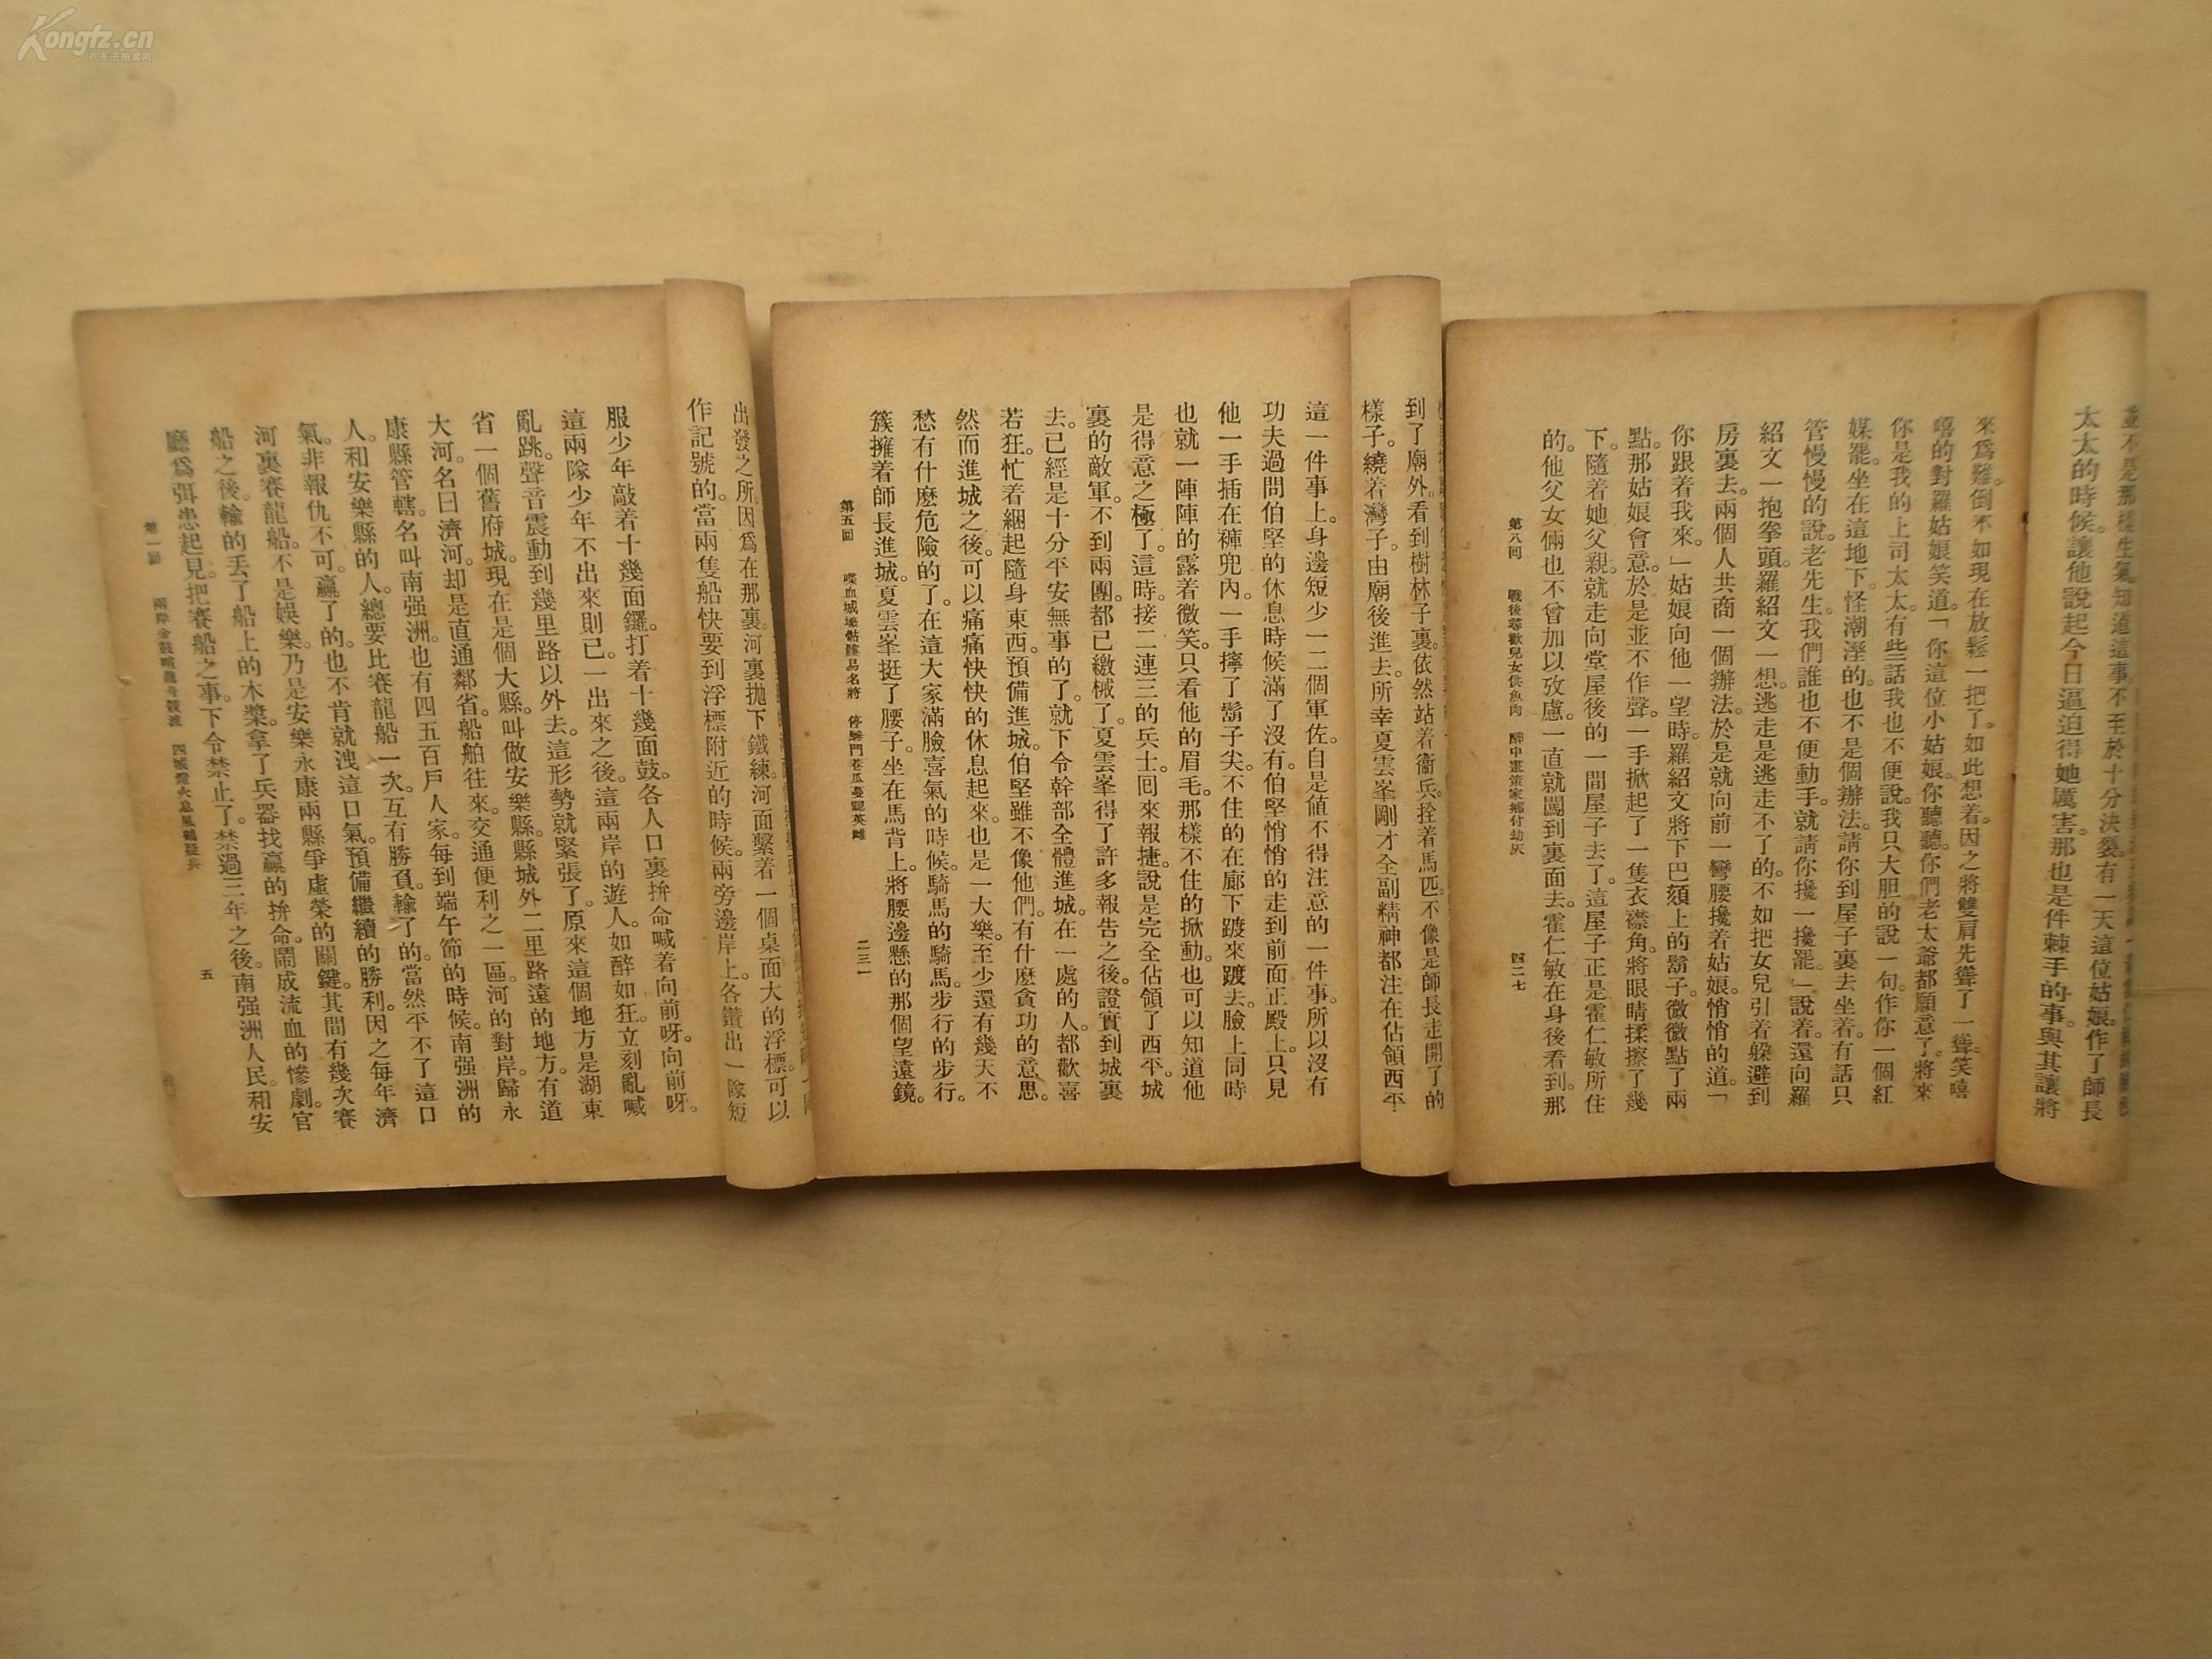 Kongfz.cn
孔夫子拍卖网
太太的時候。讓他說起今日逼迫得她厲害。那也是件棘手的事。與其讓將
來爲難。倒不如現在放鬆一把了。如此想着。因之將雙肩先聳了一聳。笑嘻
嘻的對羅姑娘笑道。「你這位小姑娘。你聽聽。你們老太爺都願意了。將來
你是我的上司太太。有些話我也不便說。我只大胆的說一句。作你一個紅
媒罷。坐在這地下。怪潮溼的。也不是個辦法。請你到屋子裏去坐着。有話只
管慢慢的說。老先生。我們誰也不便動手。就請你攙一攙罷。」說着。還向羅
紹文一抱拳頭。羅紹文一想。逃走是逃走不了的。不如把女兒引着躲避到
房裏去。兩個人共商一個辦法。於是就向前一彎腰攙着姑娘。悄悄的道。「
你跟着我來。」姑娘向他一望時。羅紹文將下巴頦上的鬍子。微微點了兩
點。那姑娘會意。於是並不作聲。一手掀起了一隻衣襟角。將眼睛揉擦了幾
下。隨着她父親。就走向堂屋後的一間屋子去了。這屋子正是霍仁敏所住
的。他父女倆也不曾加以攷慮。一直就闖到裏面去。霍仁敏在身後看到。那
第八回 戰後尋歡兒女供魚肉 醉中畫策家鄉付劫灰 四二七
到了廟外。看到樹林子裏。依然站着衞兵。拴着馬匹。不像是師長走開了的
樣子。繞着灣子。由廟後進去。所幸夏雲峯剛才全副精神都注在佔領西平
這一件事上。身邊短少一二個軍佐。自是値不得注意的一件事。所以沒有
功夫過問伯堅的休息時候滿了沒有。伯堅悄悄的走到前面正殿上。只見
他一手插在褲兜內。一手擰了鬍子尖。不住的在廊下踱來踱去。臉上同時
也就一陣陣的露着微笑。只看他的眉毛。那樣不住的掀動。也可以知道他
是得意之極了。這時。接二連三的兵士。回來報捷。說是完全佔領了西平。城
裏的敵軍。不到兩團。都已繳械了。夏雲峯得了許多報告之後。證實到城裏
去。已經是十分平安無事的了。就下令幹部全體進城。在一處的人。都歡喜
若狂。忙着綑起隨身東西。預備進城。伯堅雖不像他們。有什麼貪功的意思。
然而進城之後。可以痛痛快快的休息起來。也是一大樂。至少還有幾天不
愁有什麼危險的了。在這大家滿臉喜氣的時候。騎馬的騎馬。步行的步行。
簇擁着師長進城。夏雲峯挺了腰子。坐在馬背上。將腰邊懸的那個望遠鏡。
第五回 喋血城壕骷髏易名將 停驂門巷瓜蔓認英雌 二三一
出發之所。因爲在那裏。河裏抛下鐵練。河面繫着一個桌面大的浮標。可以
作記號的。當兩隻船快要到浮標附近的時候。兩旁邊岸上。各鑽出一隊短
服少年敲着十幾面鑼。打着十幾面鼓。各人口裏拚命喊着向前呀。向前呀。
這兩隊少年不出來則已。一出來之後。這兩岸的遊人。如醉如狂。立刻亂喊
亂跳。聲音震動到幾里路以外去。這形勢就緊張了。原來這個地方。是湖東
省一個舊府城。現在是個大縣。叫做安樂縣。縣城外二里路遠的地方。有道
大河。名曰濟河。却是直通鄰省。船舶往來。交通便利之一區。河的對岸。歸永
康縣管轄。名叫南强洲。也有四五百戶人家。每到端午節的時候。南强洲的
人。和安樂縣的人。總要比賽龍船一次。互有勝負。輸了的。當然平不了這口
氣。非報仇不可。贏了的。也不肯就洩這口氣。預備繼續的勝利。因之每年濟
河裏賽龍船。不是娛樂。乃是安樂永康兩縣爭虛榮的關鍵。其間有幾次賽
船之後。輸的丟了船上的木槳。拿了兵器找贏的拚命。鬧成流血的慘劇。官
廳爲弭患起見。把賽船之事。下令禁止了。禁過三年之後。南强洲人民。和安
第一回 兩岸金鼓喊龍舟競渡 四城燈火息風鶴疑兵 五